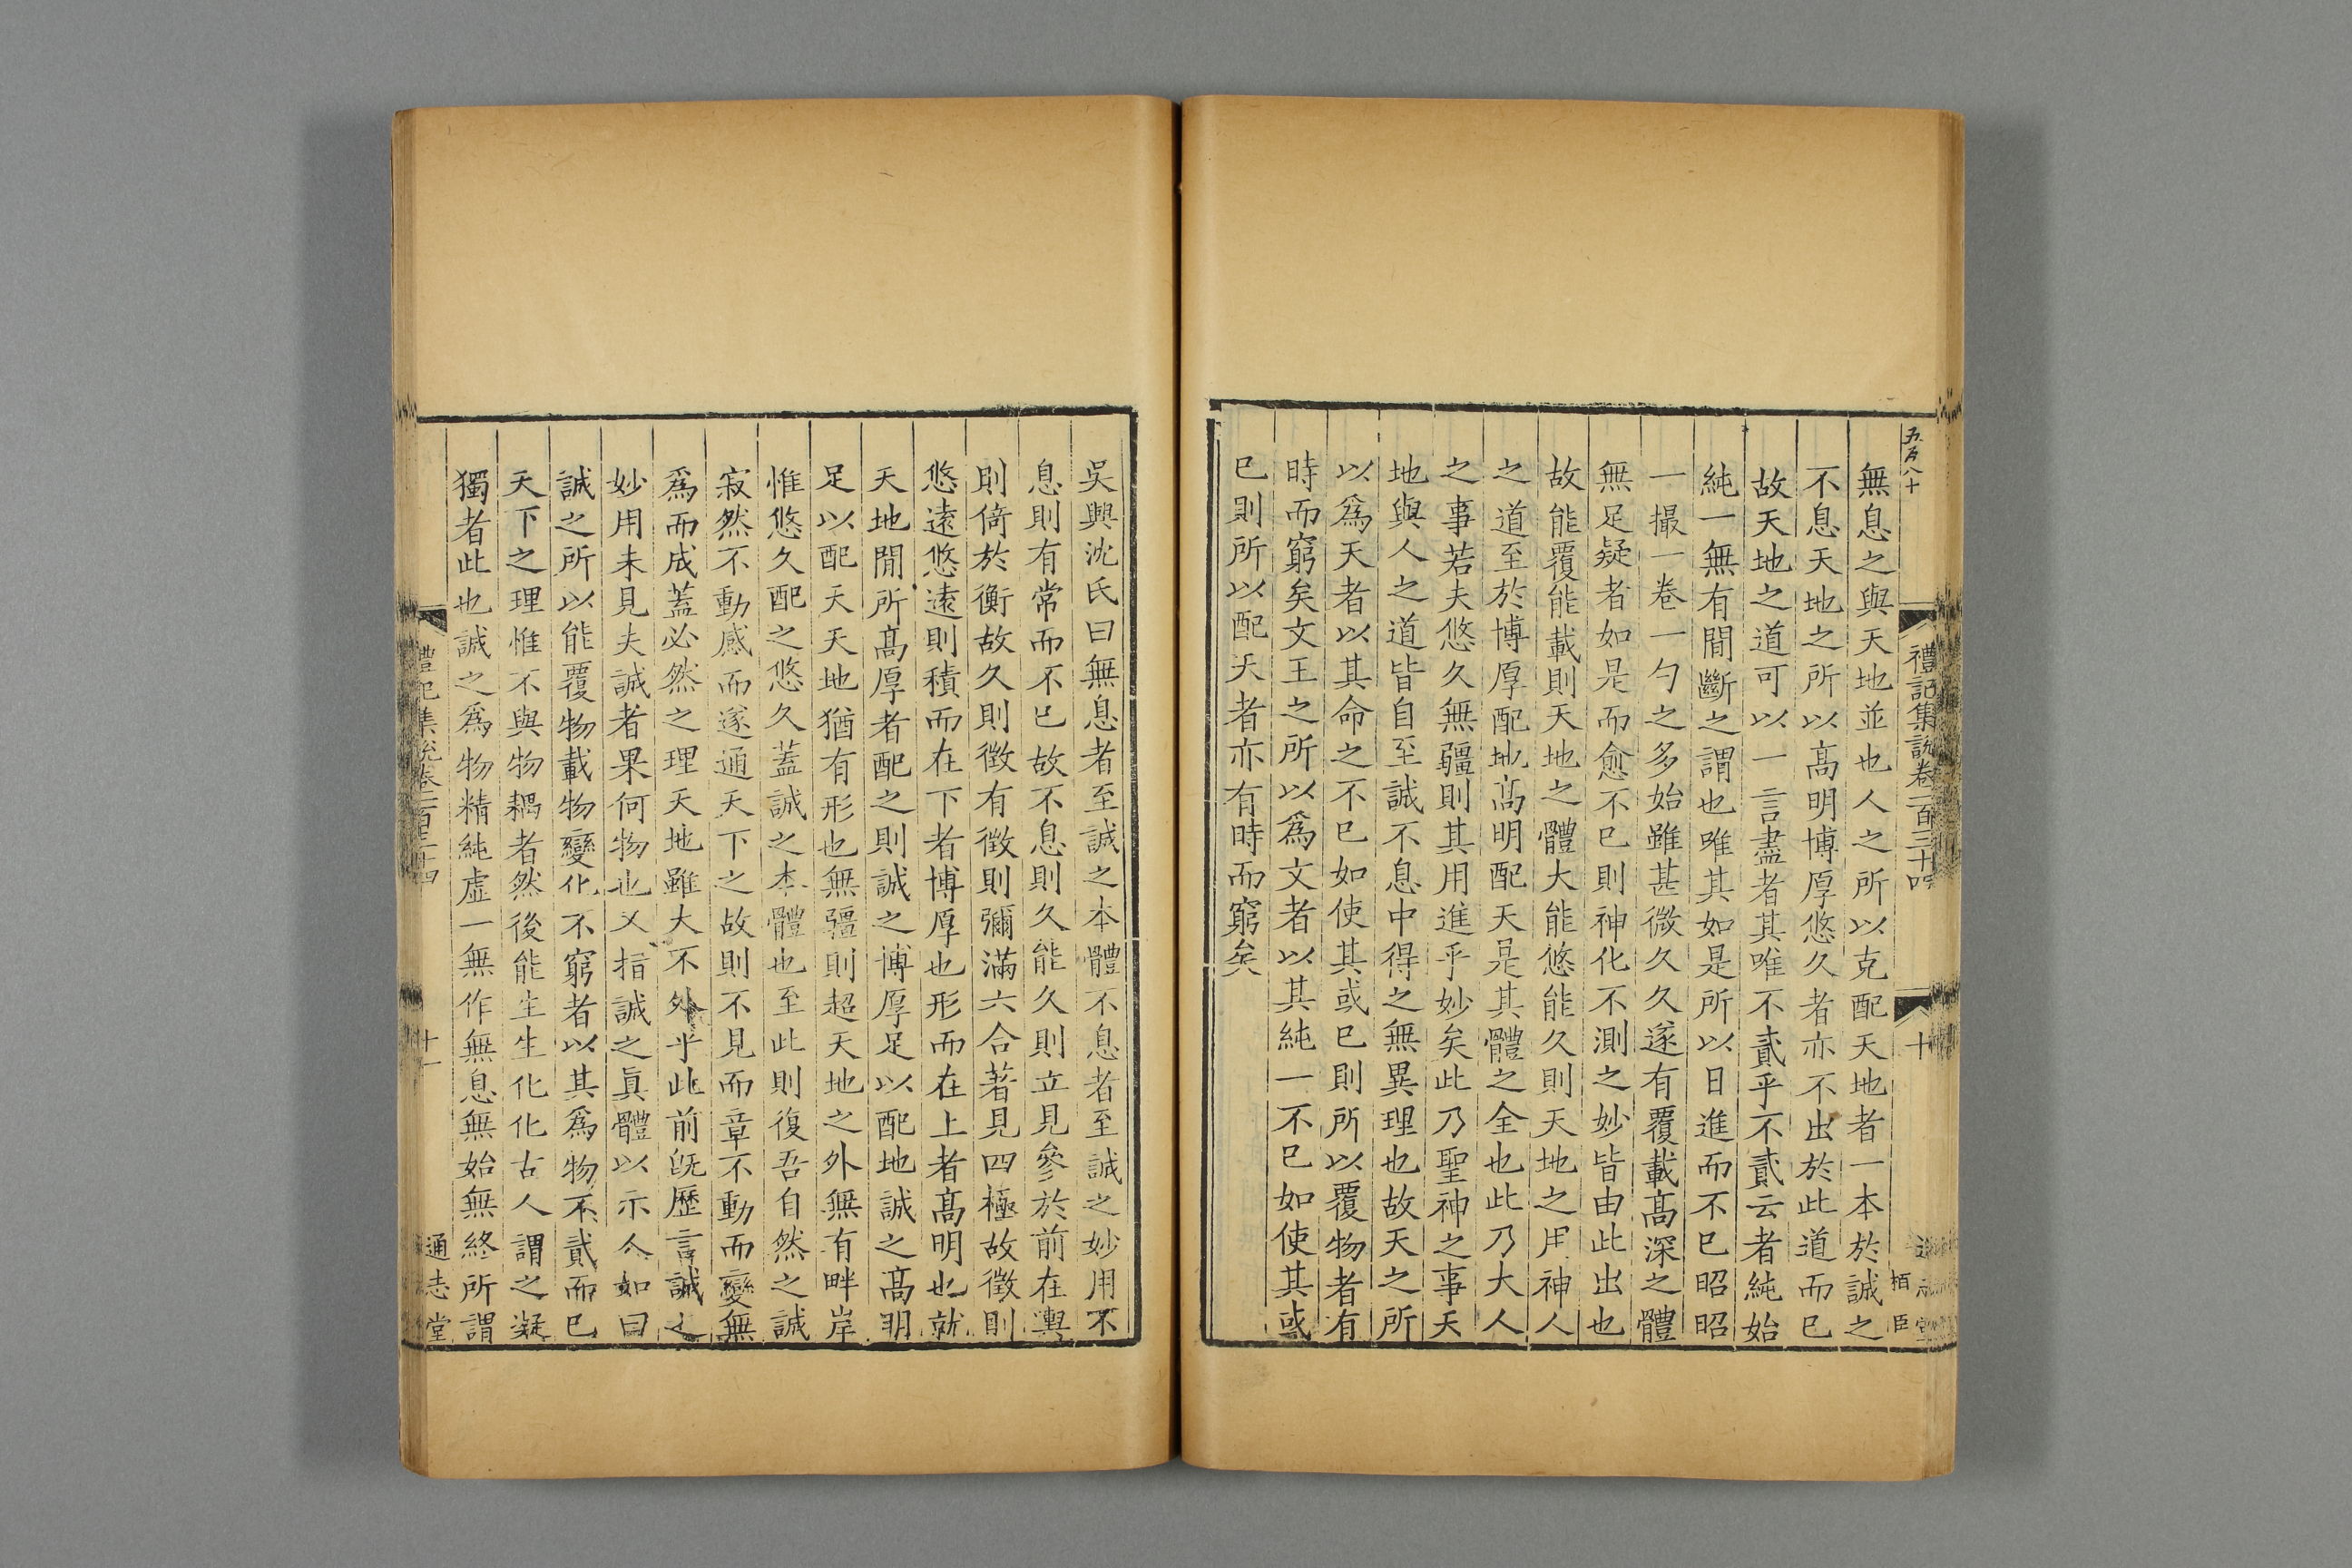 五百八十
禮記集說卷一百三十四
十
栢臣
無息之與天地並也人之所以克配天地者一本於誠之
不息天地之所以高明博厚悠久者亦不出於此道而已
故天地之道可以一言盡者其唯不貳乎不貳云者純始
純一無有間斷之謂也唯其如是所以日進而不已昭昭
一撮一卷一勺之多始雖甚微久久遂有覆載高深之體
無足疑者如是而愈不已則神化不測之妙皆由此出也
故能覆能載則天地之體大能悠能久則天地之用神人
之道至於博厚配地高明配天是其體之全也此乃大人
之事若夫悠久無疆則其用進乎妙矣此乃聖神之事天
地與人之道皆自至誠不息中得之無異理也故天之所
以爲天者以其命之不已如使其或已則所以覆物者有
時而窮矣文王之所以爲文者以其純一不已如使其或
已則所以配天者亦有時而窮矣
吳興沈氏曰無息者至誠之本體不息者至誠之妙用不
息則有常而不已故不息則久能久則立見參於前在輿
則倚於衡故久則徵有徵則彌滿六合著見四極故徵則
悠遠悠遠則積而在下者博厚也形而在上者高明也就
天地間所高厚者配之則誠之博厚足以配地誠之高明
足以配天天地猶有形也無疆則超天地之外無有畔岸
惟悠久配之悠久蓋誠之本體也至此則復吾自然之誠
寂然不動感而遂通天下之故則不見而章不動而變無
爲而成蓋必然之理天地雖大不外乎此前既歷言誠之
妙用未見夫誠者果何物也又指誠之眞體以示人如曰
誠之所以能覆物載物變化不窮者以其爲物不貳而已
天下之理惟不與物耦者然後能生生化化古人謂之凝
獨者此也誠之爲物精純虛一無作無息無始無終所謂
禮記集說卷一百三十四
十一
通志堂